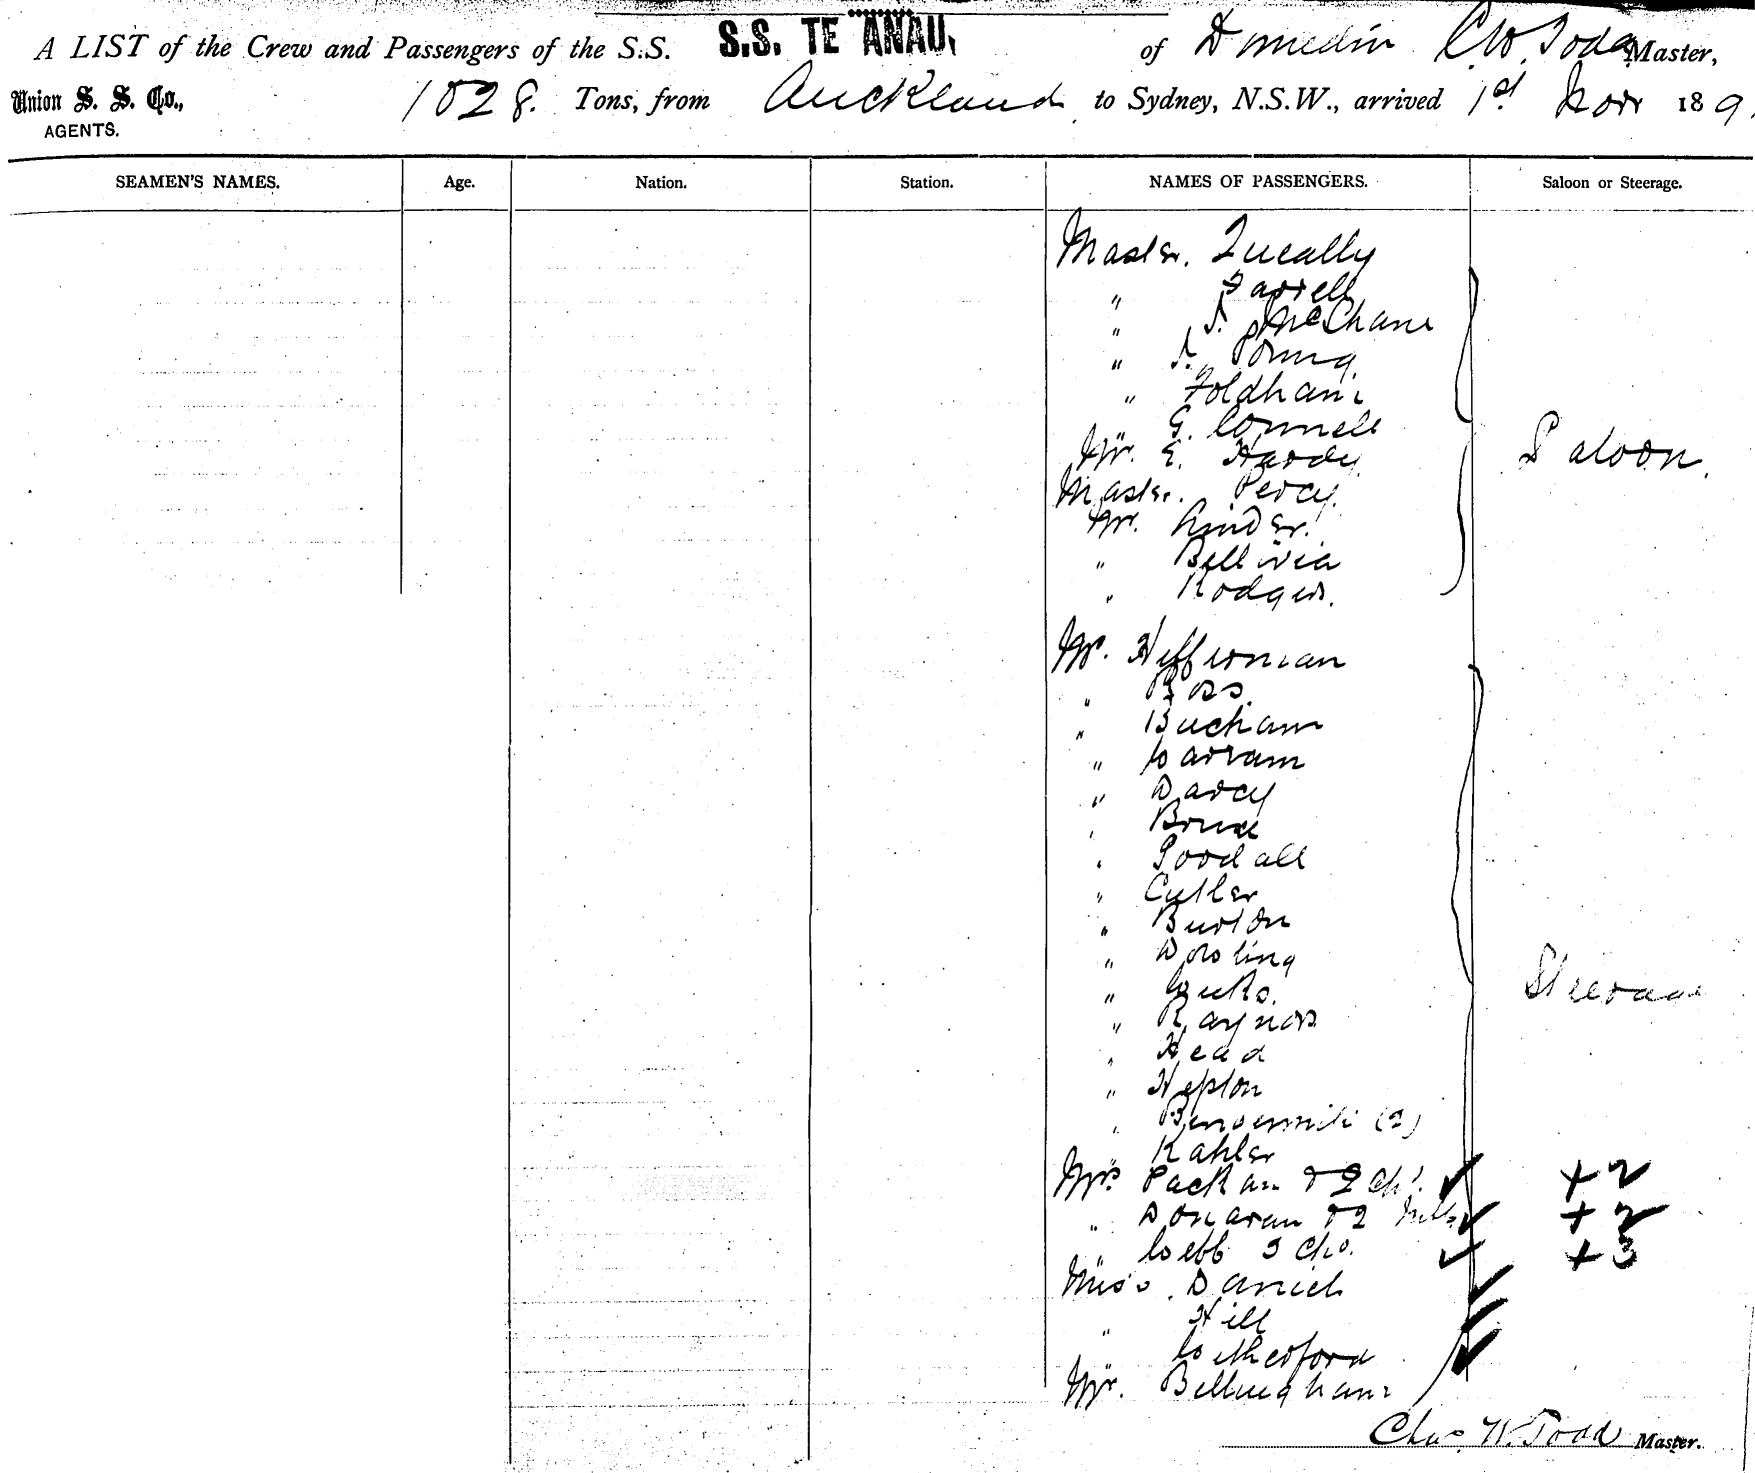 A LIST of the Crew and Passengers of the S.S. S.S. TE ANAU, of Dunedin C.W. Todd Master,
Union S. S. Co., AGENTS. 1028. Tons, from Auckland to Sydney, N.S.W., arrived 1st Nov 189
SEAMEN'S NAMES. Age. Nation. Station. NAMES OF PASSENGERS. Saloon or Steerage.
Master. Queally
" Farrell
" J. McShane
" J. Young
" Foldham
" G. Connell
Mr. E. Hardy Saloon.
Master. Percy.
Mr. Kinder.
" Bellivia
" Rodgers.
Mr. Heffernan
" Ross
" Bucham
" Carram
" Darcy
" Bruce
" Goodall
" Cutler
" Burton
" Dowling
" Steerage
" Raynor
" Head
" Hepton
" (2)
" Kahler
Mrs. Packan & 2 Ch. + 2
" Donavan & 2 + 2
" Webb 3 Chn. + 3
Miss. Daniel
" Hill
" Wetherford
Mr. Bellingham
Chas. W. Todd Master.